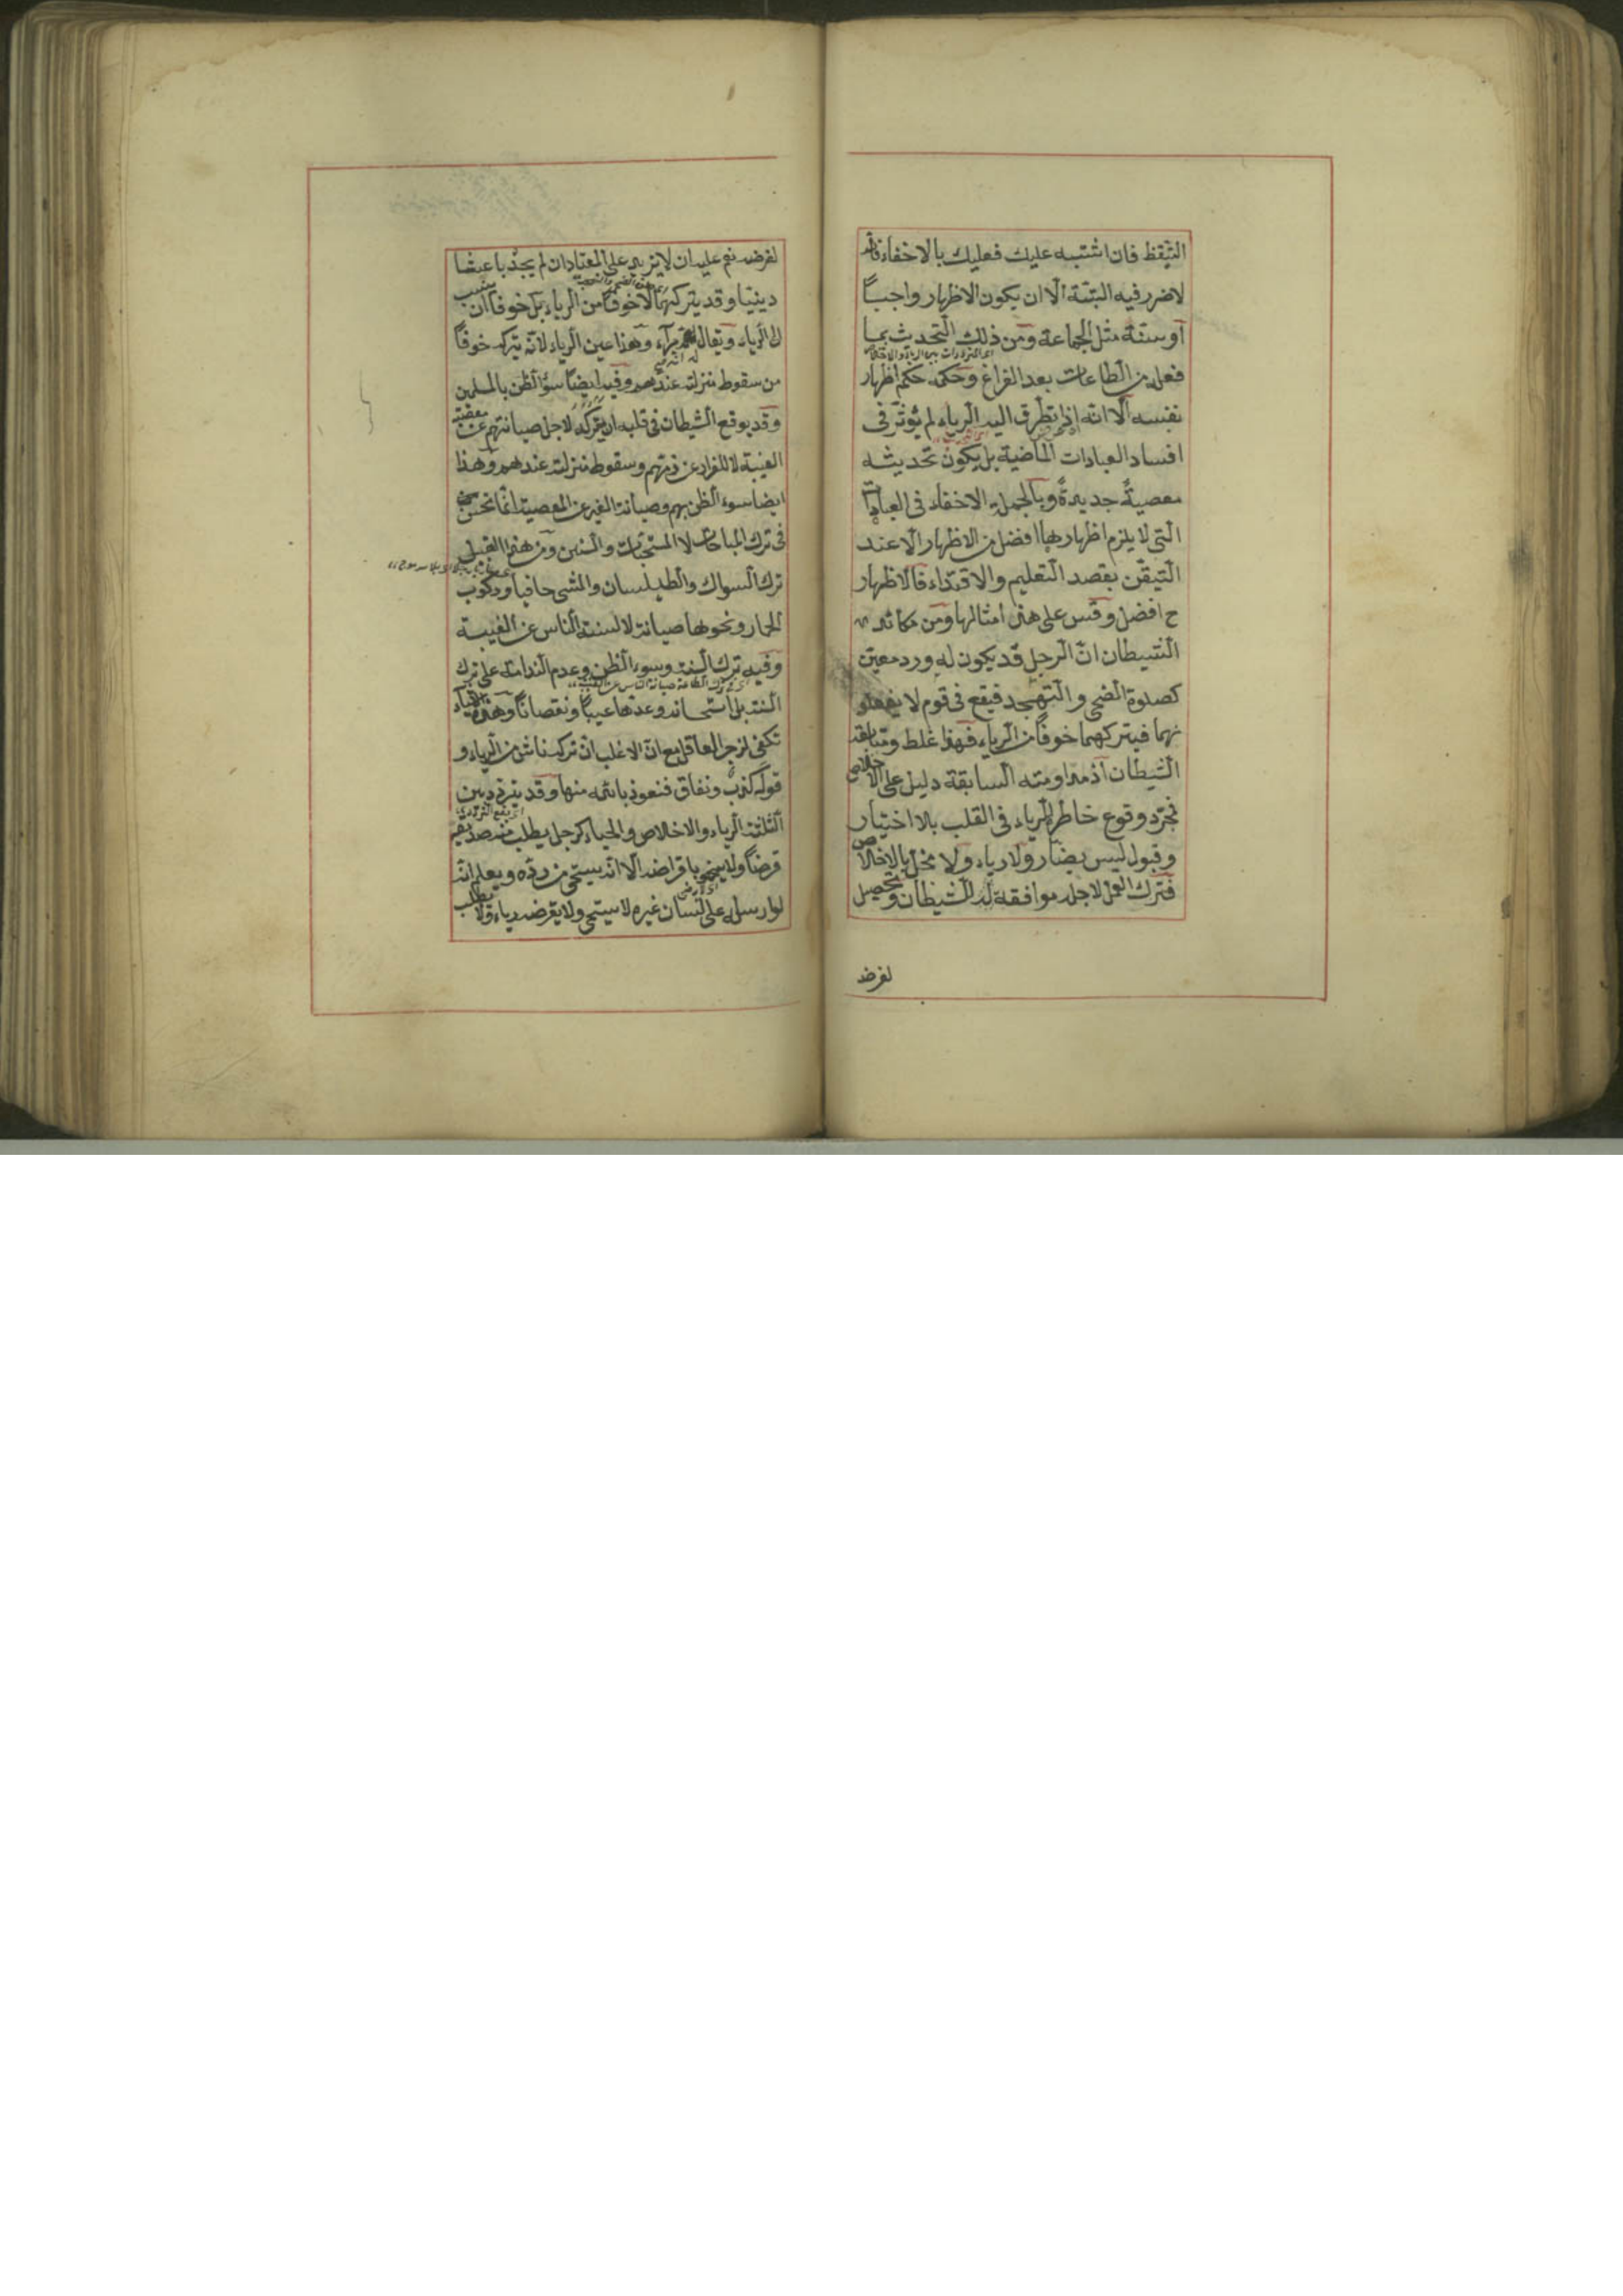 التيقظ فان اشتبه عليك فعليك بالاخفاء فانه
لا ضرر فيه البتة الا ان يكون الاظهار واجباً
او سنة مثل الجماعة ومن ذلك التحدث بما
فعله من الطاعات بعد الفراغ وحكمه حكم اظهار
نفسه الا انه اذا تطرق اليه الرياء لم يؤثر فى
افساد العبادات الماضية بل يكون تحديثه
معصيةً جديدةً وبالجملة الاخفاء فى العبادات
التى لا يلزم اظهارها افضل من الاظهار الا عند
التيقن بقصد التعليم والاقتداء فالاظهار
ح افضل وقس على هذا امثالها ومن مكائد
الشيطان ان الرجل قد يكون له ورد معين
كصلوة الضحى والتهجد فيقع فى قوم لا يفعلو
نهما فيتركهما خوفاً من الرياء فهذا غلط ومتابعة
الشيطان اذ مداومته السابقة دليل على الاخلاص
فمجرد وقوع خاطر الرياء فى القلب بلا اختيار
وقبول ليس بضار ولا رياء ولا مخل بالاخلاص
فترك العمل لاجله موافقة للشيطان وتحصيل
لغرضه
لغرضه نعم عليه ان لا يزيد على المعتاد ان لم يجد باعثا
دينيا وقد يتركهما لا خوفاً من الرياء بل خوفا ان ينسب
الى الرياء ويقال انه مراء وهذا عين الرياء لانه يتركه خوفاً
من سقوط منزلته عندهم وفيه ايضاً سؤ الظن بالمسلمين
وقد يوقع الشيطان فى قلبه ان يتركه لاجل صيانتهم عن معصية
الغيبة لا للفرار عن ذمهم وسقوط منزلته عندهم وهذا
ايضا سوء الظن بهم وصيانة الغير عن المعصية انما تحسن
فى ترك المباحات لا المستحبات والسنن ومن هذا القبيل
ترك السواك والطيلسان والمشى حافيا وركوب
الحمار ونحوها صيانة لالسنة الناس عن الغيبة
وفيه ترك السنة وسوء الظن وعدم الندامة على ترك
السنة بل استحسانه وعدها عيباً ونقصاناً وهذه الاشياء
تكفى لزجر العاقل مع ان الاغلب ان تركه ناش من الرياء و
قوله كذب ونفاق فنعوذ بالله منها وقد يتردد بين
الثلثة الرياء والاخلاص والحياء كرجل يطلب منه صديقه
قرضاً ولا يسخو باقراضه الا انه يستحى من رده ويعلم انه
لو ارسله على لسان غيره لا يستحى ولا يقرض رياء ولا يطلب